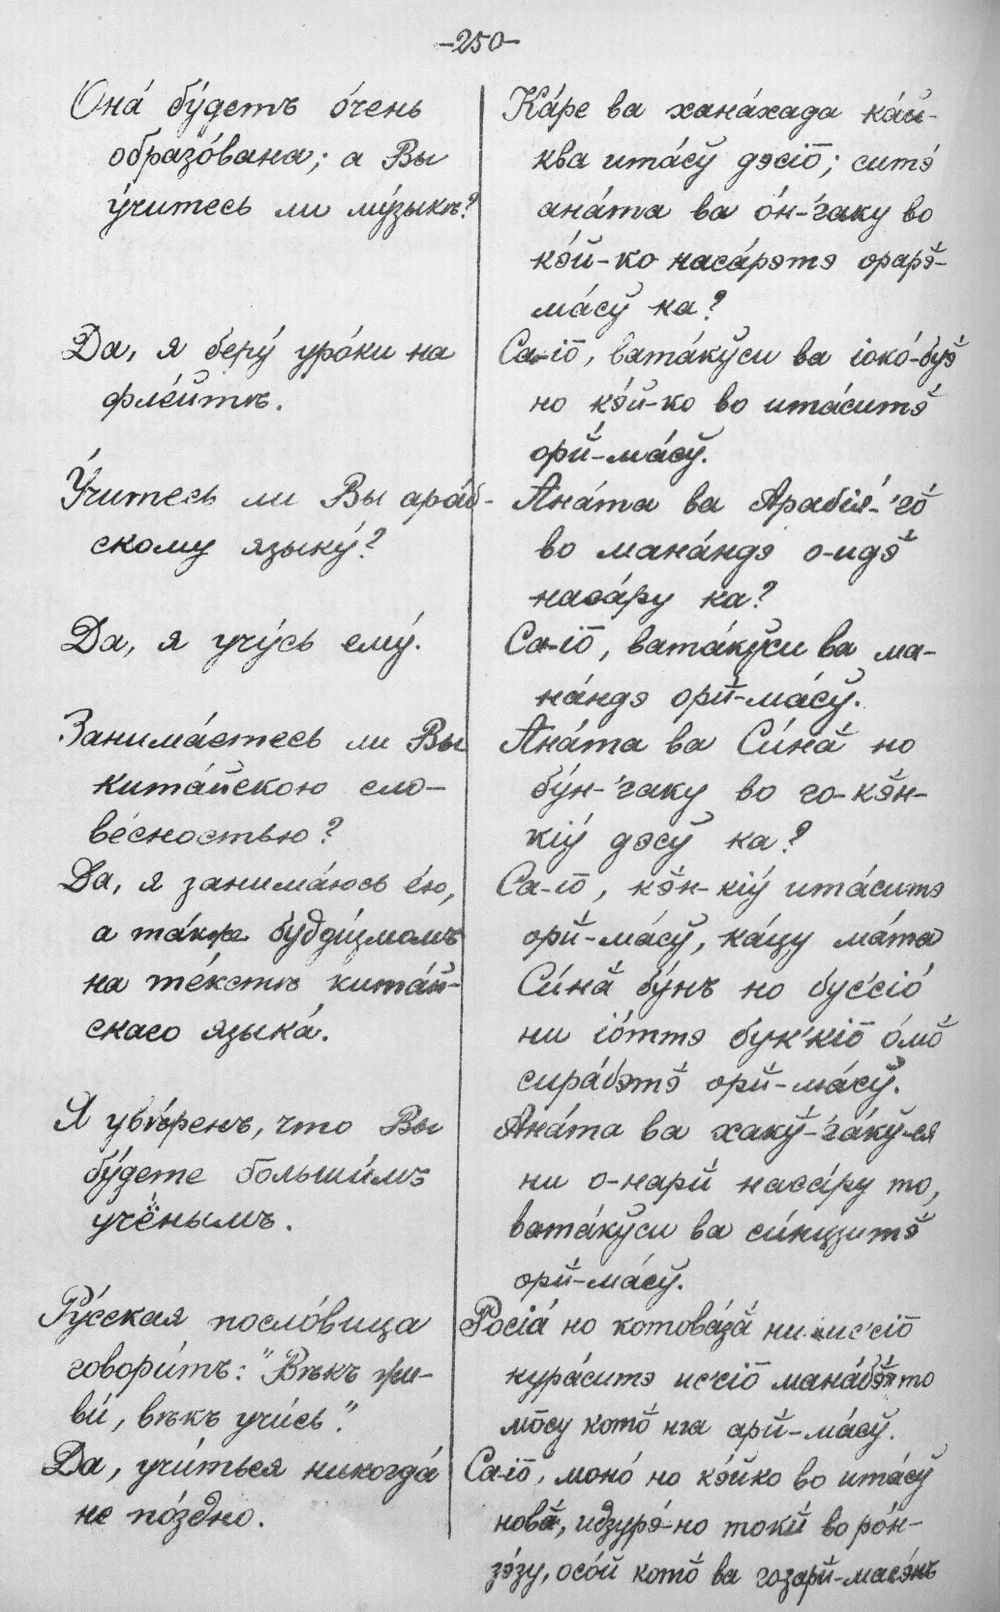 -250-
Она́ бу́детъ о́чень
образо́вана; а Вы
у́читесь ли му́зыкѣ?
Да, я беру́ уро́ки на
фле́йтѣ.
У́читесь ли Вы ара́б-
скому языку́?
Да, я учу́сь ему́.
Занима́етесь ли Вы
кита́йскою сло-
ве́сностью?
Да, я занима́юсь е́ю,
а та́кже будди́змомъ
на те́кстѣ кита́й-
скаго языка́.
Я увѣ́ренъ, что Вы
бу́дете больши́мъ
учёнымъ.
Ру́сская посло́вица
говори́тъ: "Вѣкъ жи-
ви́, вѣкъ учи́сь".
Да, учи́ться никогда́
не по́здно.
Ка́ре ва хана́хада ка́й-
ква ита́сӯ дэсіо̄; ситэ́
ана́та ва о́н-'гаку во
кэ́й-ко наса́рэтэ орарэ̄-
ма́сӯ ка?
Са-іо̄, вата́кӯси ва іоко́-буэ̄
но кэ́й-ко во ита́ситэ̄
орӣ-ма́сӯ.
Ана́та ва Арабія́-'го̄
во мана́ндэ о-идэ̄
наса́ру ка?
Са-іо̄, вата́кӯси ва ма-
на́ндэ орӣ-ма́сӯ.
Ана́та ва Си́на̄ но
бу́н-'гаку во го-кэ̄н-
кіӯ дэсӯ ка?
Са-іо̄, кэ̄н-кіӯ ита́ситэ
орӣ-ма́сӯ, ка́цу ма́та
Си́на̄ бу́нъ но бу́ссіо́
ни іо́ттэ бук'кіо̄ о́мо̄
сира́бэтэ̄ орӣ-ма́сӯ.
Ана́та ва хакӯ-'га́кӯ-ся
ни о-нарӣ наса́ру то,
вата́кӯси ва си́нцзитэ̄
орӣ-ма́сӯ.
Росіа́ но котова́за̄ ни ис'сіо̄
кура́ситэ ис'сіо̄ мана́бэ̄ то
мо̄су кото̄ нга арӣ-ма́сӯ.
Са-іо̄, моно́ но кэ́йко во ита́сӯ
нова̄, идзурэ́-но токӣ во ро́н-
зэ́зу, осо́й кото̄ ва гозарӣ-масэ́нъ